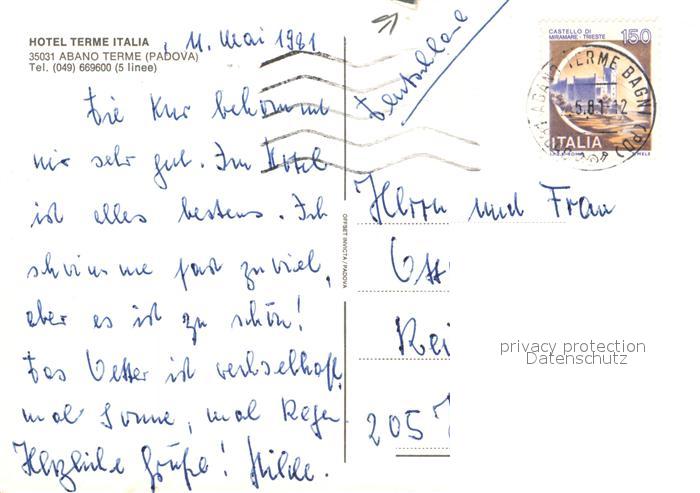 HOTEL TERME ITALIA
35031 ABANO TERME (PADOVA)
Tel. (049) 669600 (5 linee)
, 11. Mai 1981
Die Kur bekommt
mir sehr gut. Im Hotel
ist alles bestens. Ich
schwimme fast zuviel,
aber es ist zu schön!
Das Wetter ist wechselhaft,
mal Sonne, mal Regen.
Herzliche Grüße! Hilde.
OFFSET INVICTA / PADOVA
Deutschland
CASTELLO DI
MIRAMARE - TRIESTE
150
ITALIA
ABANO TERME BAGNI (PD)
5.81-12
Herrn und Frau
Ott
Rei
205
privacy protection
Datenschutz